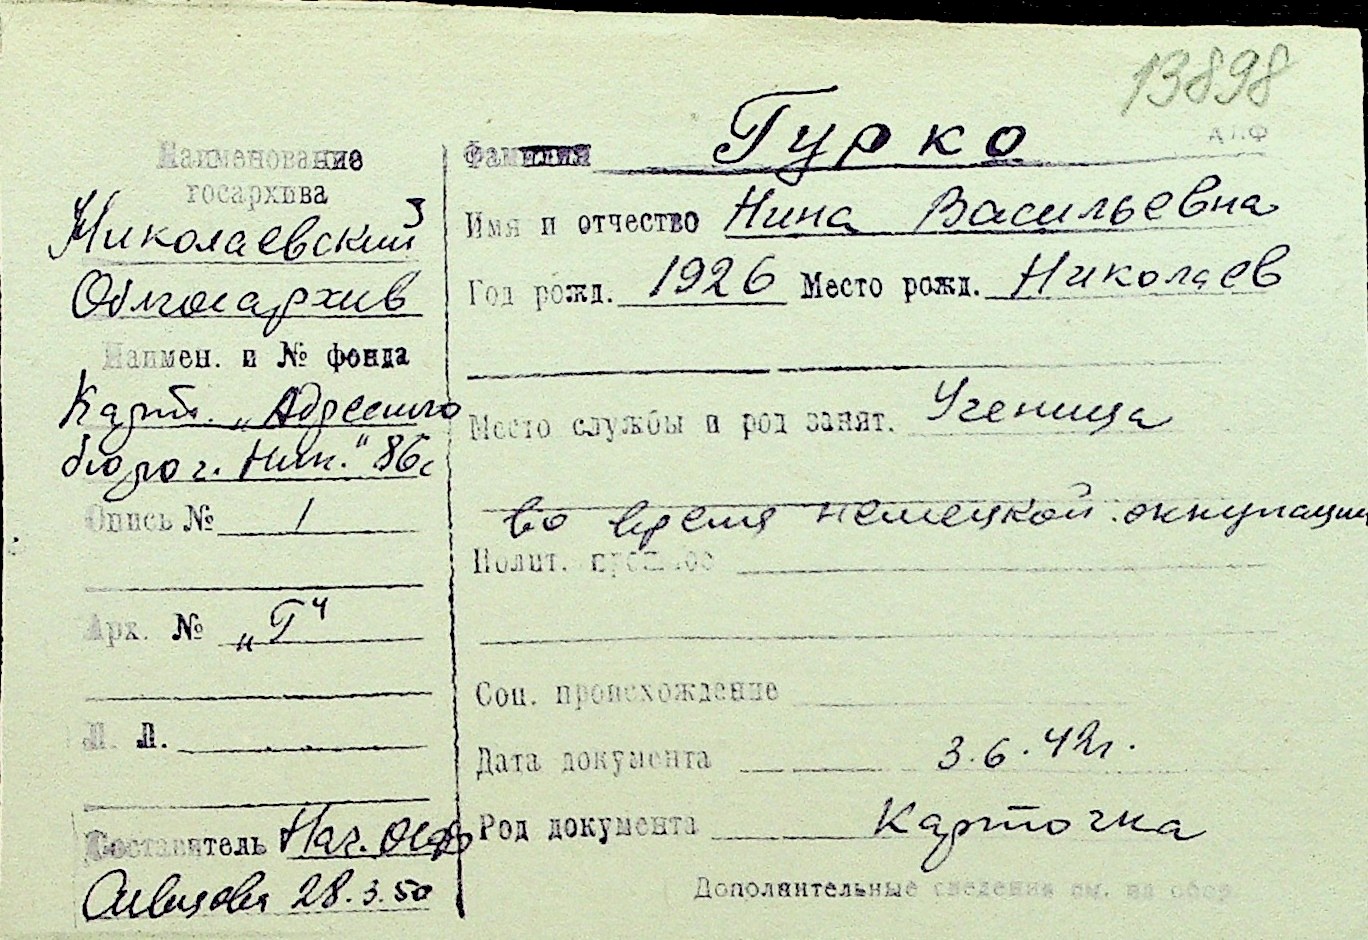 13898
АГФ
Наименование
госархива
Николаевский
Облгосархив
Наимен. и № фонда
Карт. „Адресного
бюро г. Ник." 86с
Опись № 1
Арх. № „Г"
Л. Л.
Составитель Нач.
28.3.50
Фамилия Гурко
Имя и отчество Нина Васильевна
Год рожд. 1926 Место рожд. Николаев
Место службы и род занят. Ученица
во время немецкой оккупации
Полит. прошлое
Соц. происхождение
Дата документа 3.6.42г.
Род документа Карточка
Дополнительные сведения см. на обор.